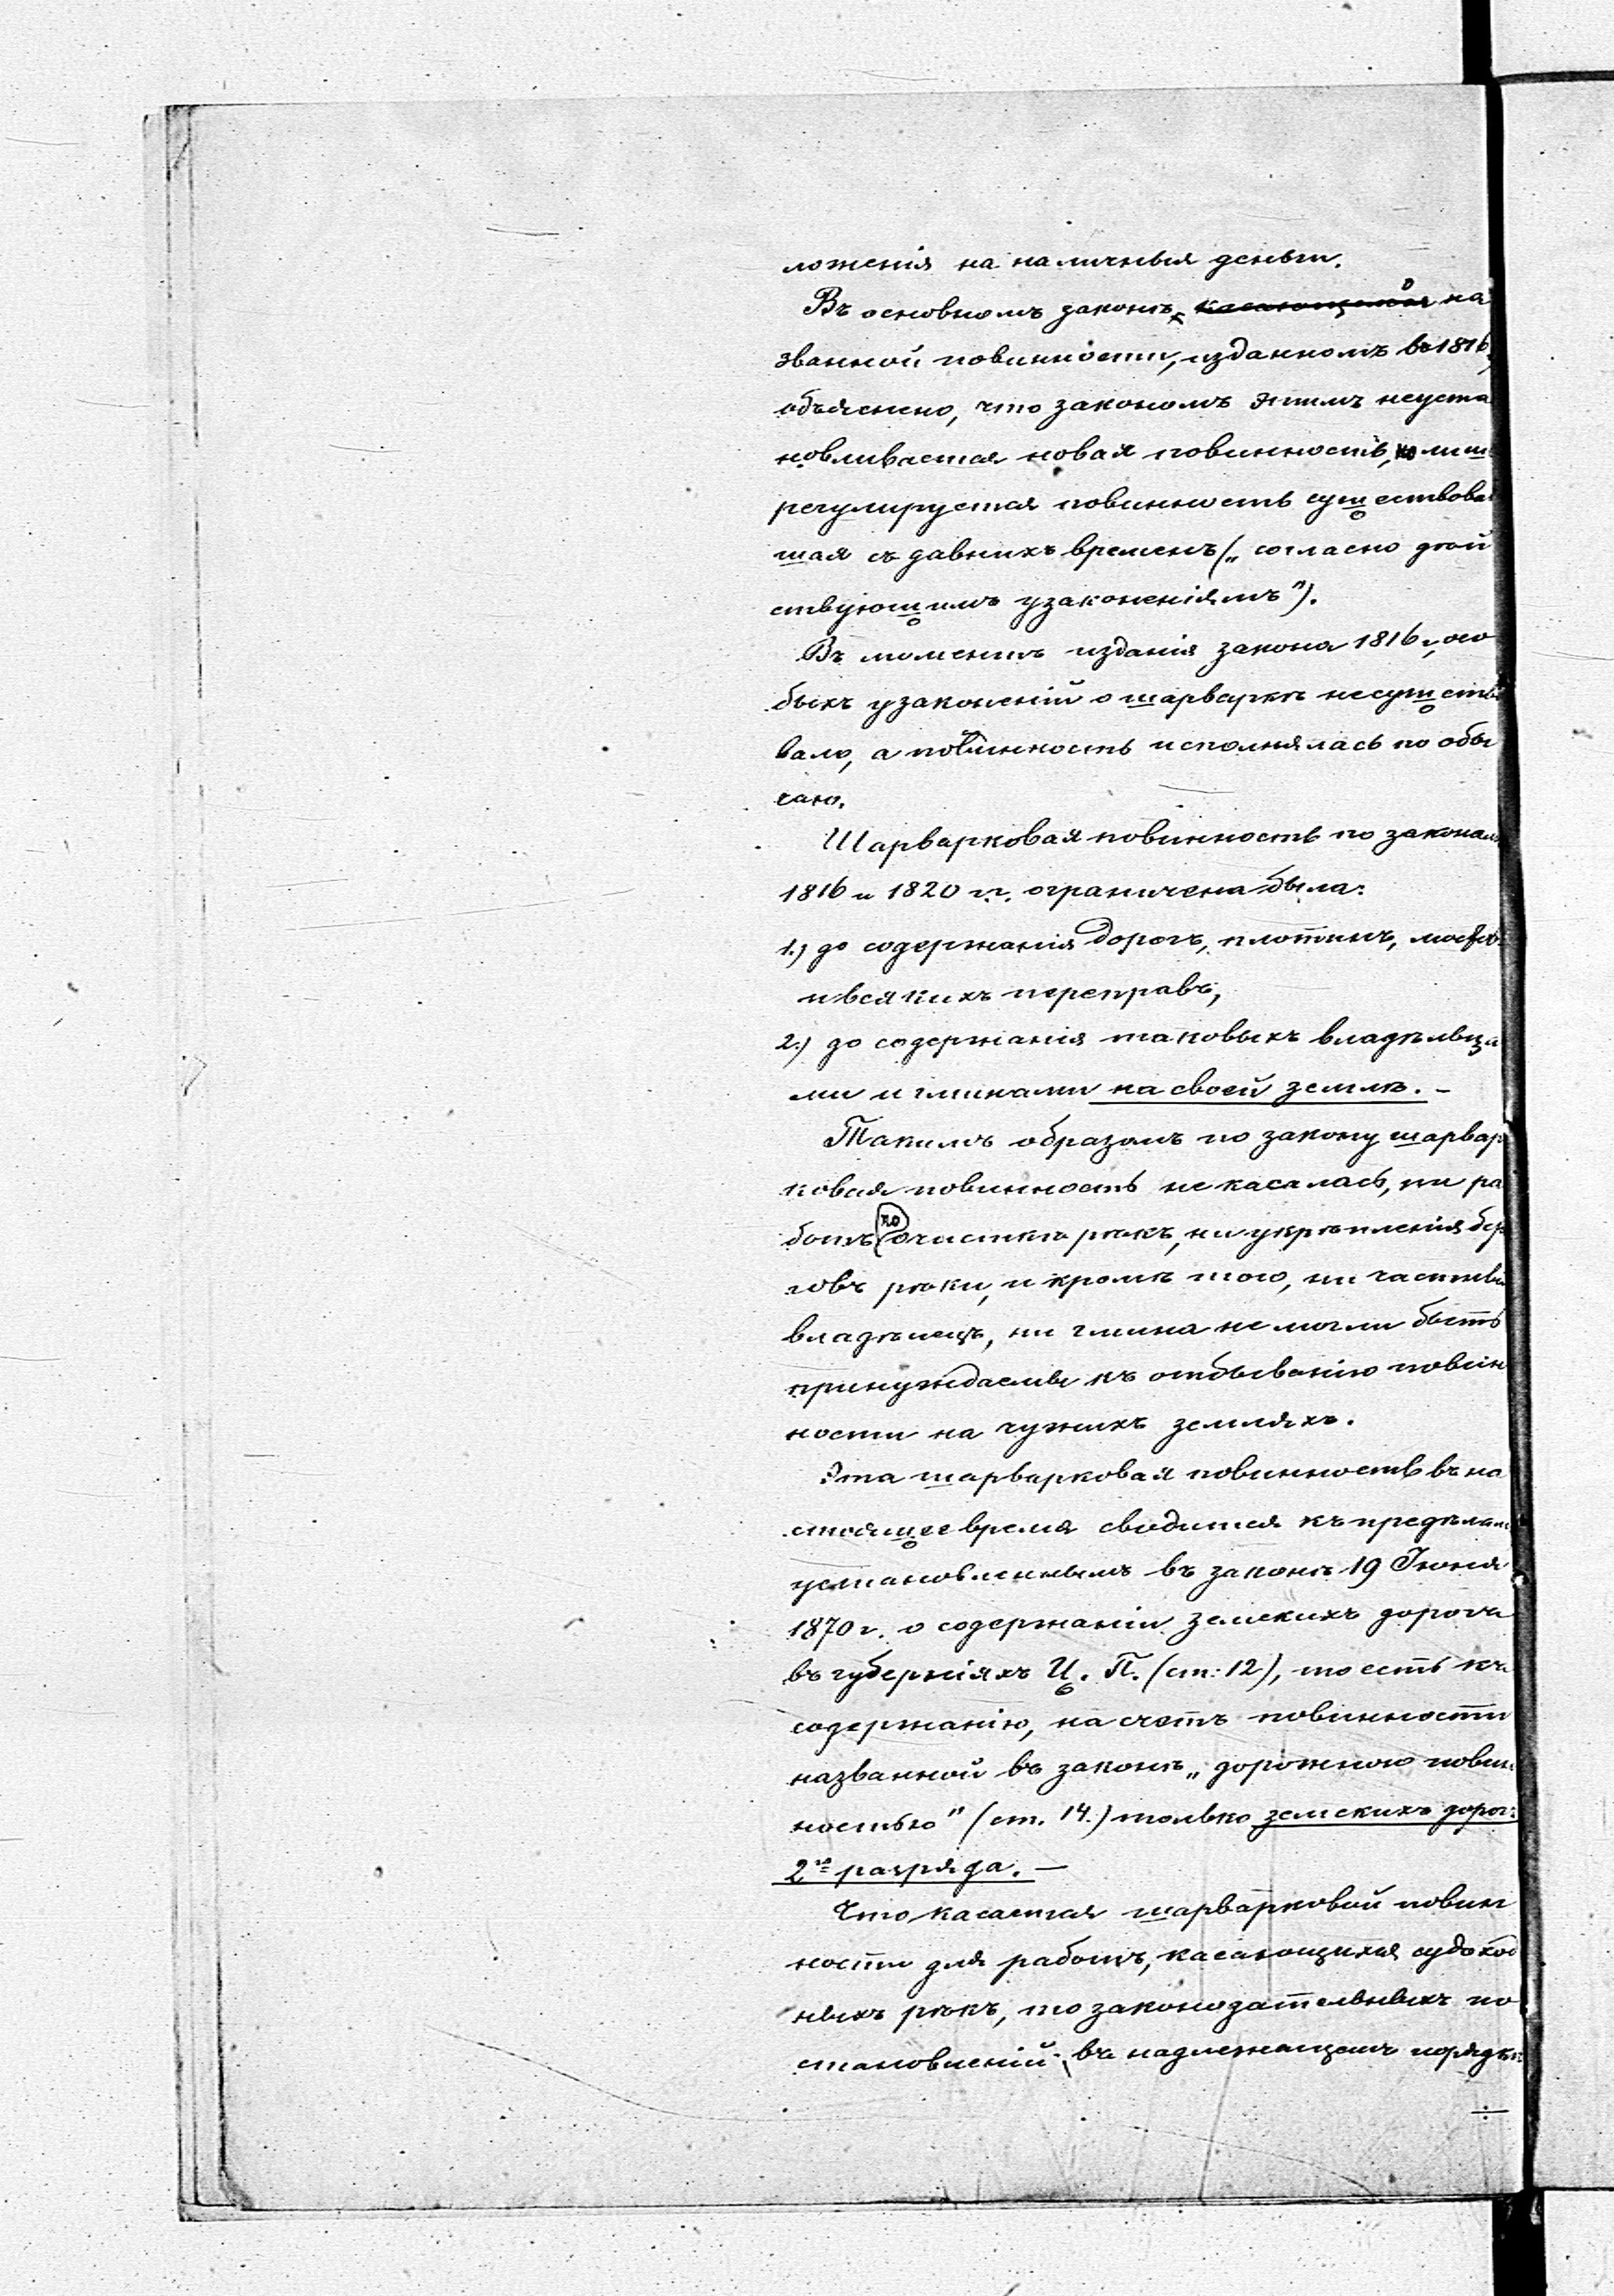 ложенія на наличныя деньги.
Въ основномъ законѣ, ~~касающемся~~ о на
званной повинности, изданномъ въ 1816,
объяснено, что закономъ этимъ неуста
новливается новая повинность, но лишь
регулируется повинность существовав
шая съ давнихъ временъ („согласно дѣй
ствующимъ узаконеніямъ").
Въ моментъ изданія закона 1816 г., осо
быхъ узаконеній о шарваркѣ несущество
вало, а повинность исполнялась по обы
чаю.
Шарварковая повинность по законамъ
1816 и 1820 г.г. ограничена была:
1.) до содержанія дорогъ, плотинъ, мостовъ
и всякихъ переправъ,
2.) до содержанія таковыхъ владѣльца
ми и гминами на своей землѣ. –
Такимъ образомъ по закону шарвар
ковая повинность не касалась, ни ра
ботъ по очисткѣ рѣкъ, ни укрѣпленія бер
говъ рѣки, и кромѣ того, ни частный
владѣлецъ, ни гмина не могли быть
принуждаемы къ отбыванію повин
ности на чужихъ земляхъ.
Эта шарварковая повинность въ на
стоящее время сводится къ предѣламъ
установленнымъ въ законѣ 19 Іюня
1870 г. о содержаніи земскихъ дорогъ
въ губерніяхъ Ц. П. (ст: 12), то есть къ
содержанію, на счетъ повинности
названной въ законѣ „дорожною повин
ностью" (ст. 14.) только земскихъ дорогъ
2го разряда. —
Что касается шарварковой повин
ности для работъ, касающихся судоход
ныхъ рѣкъ, то законодательныхъ по
становленій, въ надлежащемъ порядкѣ